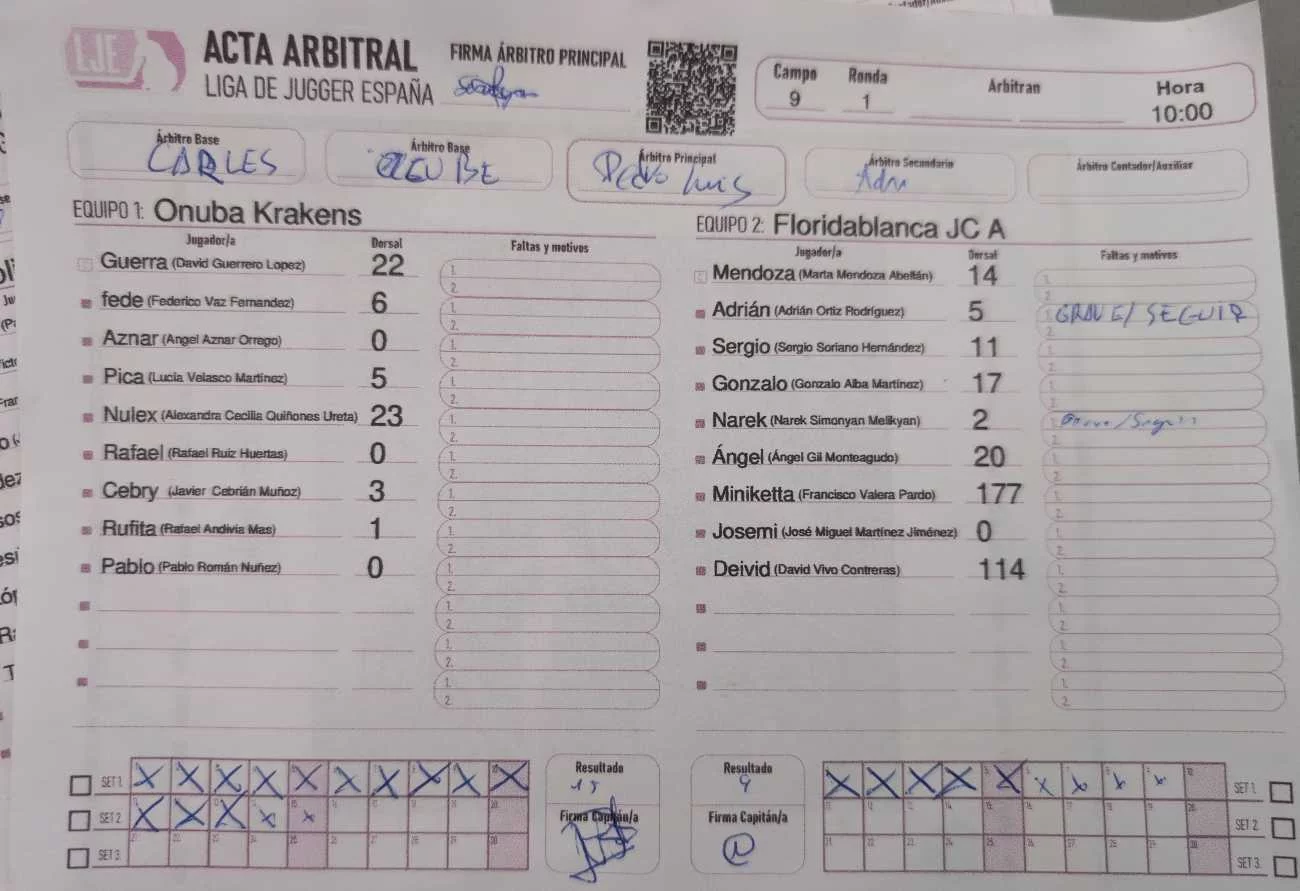 LJE
ACTA ARBITRAL
LIGA DE JUGGER ESPAÑA
FIRMA ÁRBITRO PRINCIPAL
Campo Ronda Arbitran Hora
9 1 10:00
Árbitro Base Árbitro Base Árbitro Principal Árbitro Secundario Árbitro Contador/Auxiliar
CARLES Pedro Luis Adri
EQUIPO 1: Onuba Krakens
Jugador/a Dorsal Faltas y motivos
Guerra (David Guerrero Lopez) 22 1. 2.
fede (Federico Vaz Fernandez) 6 1. 2.
Aznar (Angel Aznar Orrego) 0 1. 2.
Pica (Lucia Velasco Martínez) 5 1. 2.
Nulex (Alexandra Cecilia Quiñones Ureta) 23 1. 2.
Rafael (Rafael Ruiz Huertas) 0 1. 2.
Cebry (Javier Cebrián Muñoz) 3 1. 2.
Rufita (Rafael Andivia Mas) 1 1. 2.
Pablo (Pablo Román Nuñez) 0 1. 2.
1. 2.
1. 2.
1. 2.
EQUIPO 2: Floridablanca JC A
Jugador/a Dorsal Faltas y motivos
Mendoza (Marta Mendoza Abellán) 14 1. 2.
Adrián (Adrián Ortiz Rodríguez) 5 1. GRAVE/SEGUIR 2.
Sergio (Sergio Soriano Hernández) 11 1. 2.
Gonzalo (Gonzalo Alba Martínez) 17 1. 2.
Narek (Narek Simonyan Melikyan) 2 1. Grave/Seguir 2.
Ángel (Ángel Gil Monteagudo) 20 1. 2.
Miniketta (Francisco Valera Pardo) 177 1. 2.
Josemi (José Miguel Martínez Jiménez) 0 1. 2.
Deivid (David Vivo Contreras) 114 1. 2.
1. 2.
1. 2.
1. 2.
SET 1.
SET 2.
SET 3.
Resultado
15
Firma Capitán/a
Resultado
9
Firma Capitán/a
SET 1.
SET 2.
SET 3.